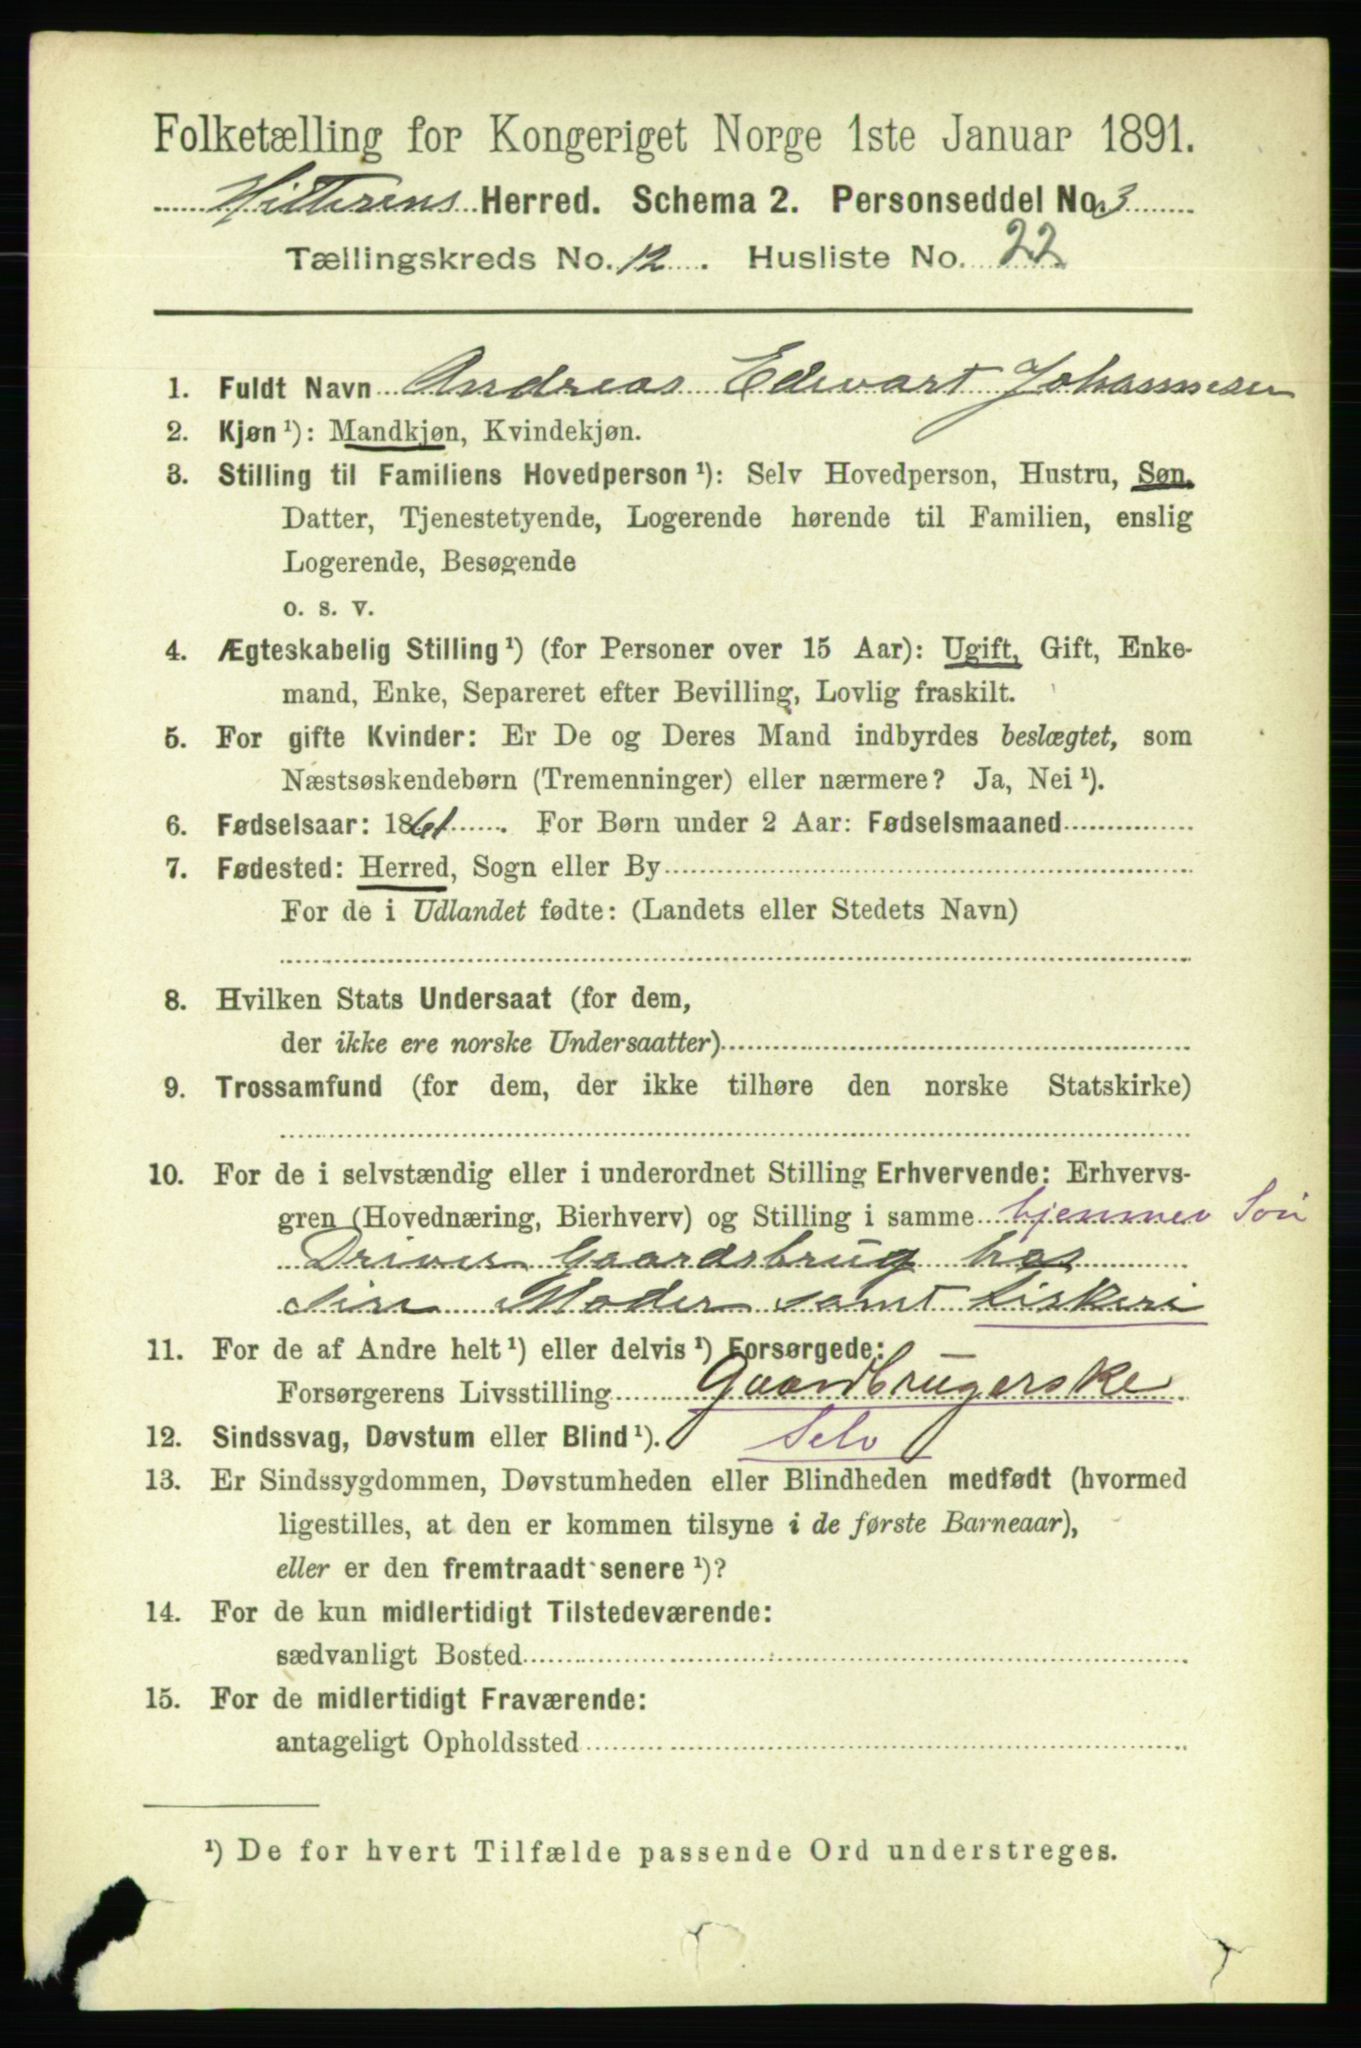 Folketælling for Kongeriget Norge 1ste Januar 1891.
Hitterens Herred. Schema 2. Personseddel No. 3
Tællingskreds No. 12. Husliste No. 22
1. Fuldt Navn Andreas Edevart Johannesen
2. Kjøn ¹): Mandkjøn, Kvindekjøn.
3. Stilling til Familiens Hovedperson ¹): Selv Hovedperson, Hustru, Søn,
Datter, Tjenestetyende, Logerende hørende til Familien, enslig
Logerende, Besøgende
o. s. v.
4. Ægteskabelig Stilling ¹) (for Personer over 15 Aar): Ugift, Gift, Enke-
mand, Enke, Separeret efter Bevilling, Lovlig fraskilt.
5. For gifte Kvinder: Er De og Deres Mand indbyrdes beslægtet, som
Næstsøskendebørn (Tremenninger) eller nærmere? Ja, Nei ¹).
6. Fødselsaar: 1861. For Børn under 2 Aar: Fødselsmaaned
7. Fødested: Herred, Sogn eller By
For de i Udlandet fødte: (Landets eller Stedets Navn)
8. Hvilken Stats Undersaat (for dem,
der ikke ere norske Undersaatter)
9. Trossamfund (for dem, der ikke tilhøre den norske Statskirke)
10. For de i selvstændig eller i underordnet Stilling Erhvervende: Erhvervs-
gren (Hovednæring, Bierhverv) og Stilling i samme hjemmev Søn
Driver Gaardsbrug hos
sin Moder samt Fiskeri
11. For de af Andre helt ¹) eller delvis ¹) Forsørgede:
Forsørgerens Livsstilling Gaardbrugerske
12. Sindssvag, Døvstum eller Blind ¹). Selv
13. Er Sindssygdommen, Døvstumheden eller Blindheden medfødt (hvormed
ligestilles, at den er kommen tilsyne i de første Barneaar),
eller er den fremtraadt senere ¹)?
14. For de kun midlertidigt Tilstedeværende:
sædvanligt Bosted
15. For de midlertidigt Fraværende:
antageligt Opholdssted
¹) De for hvert Tilfælde passende Ord understreges.